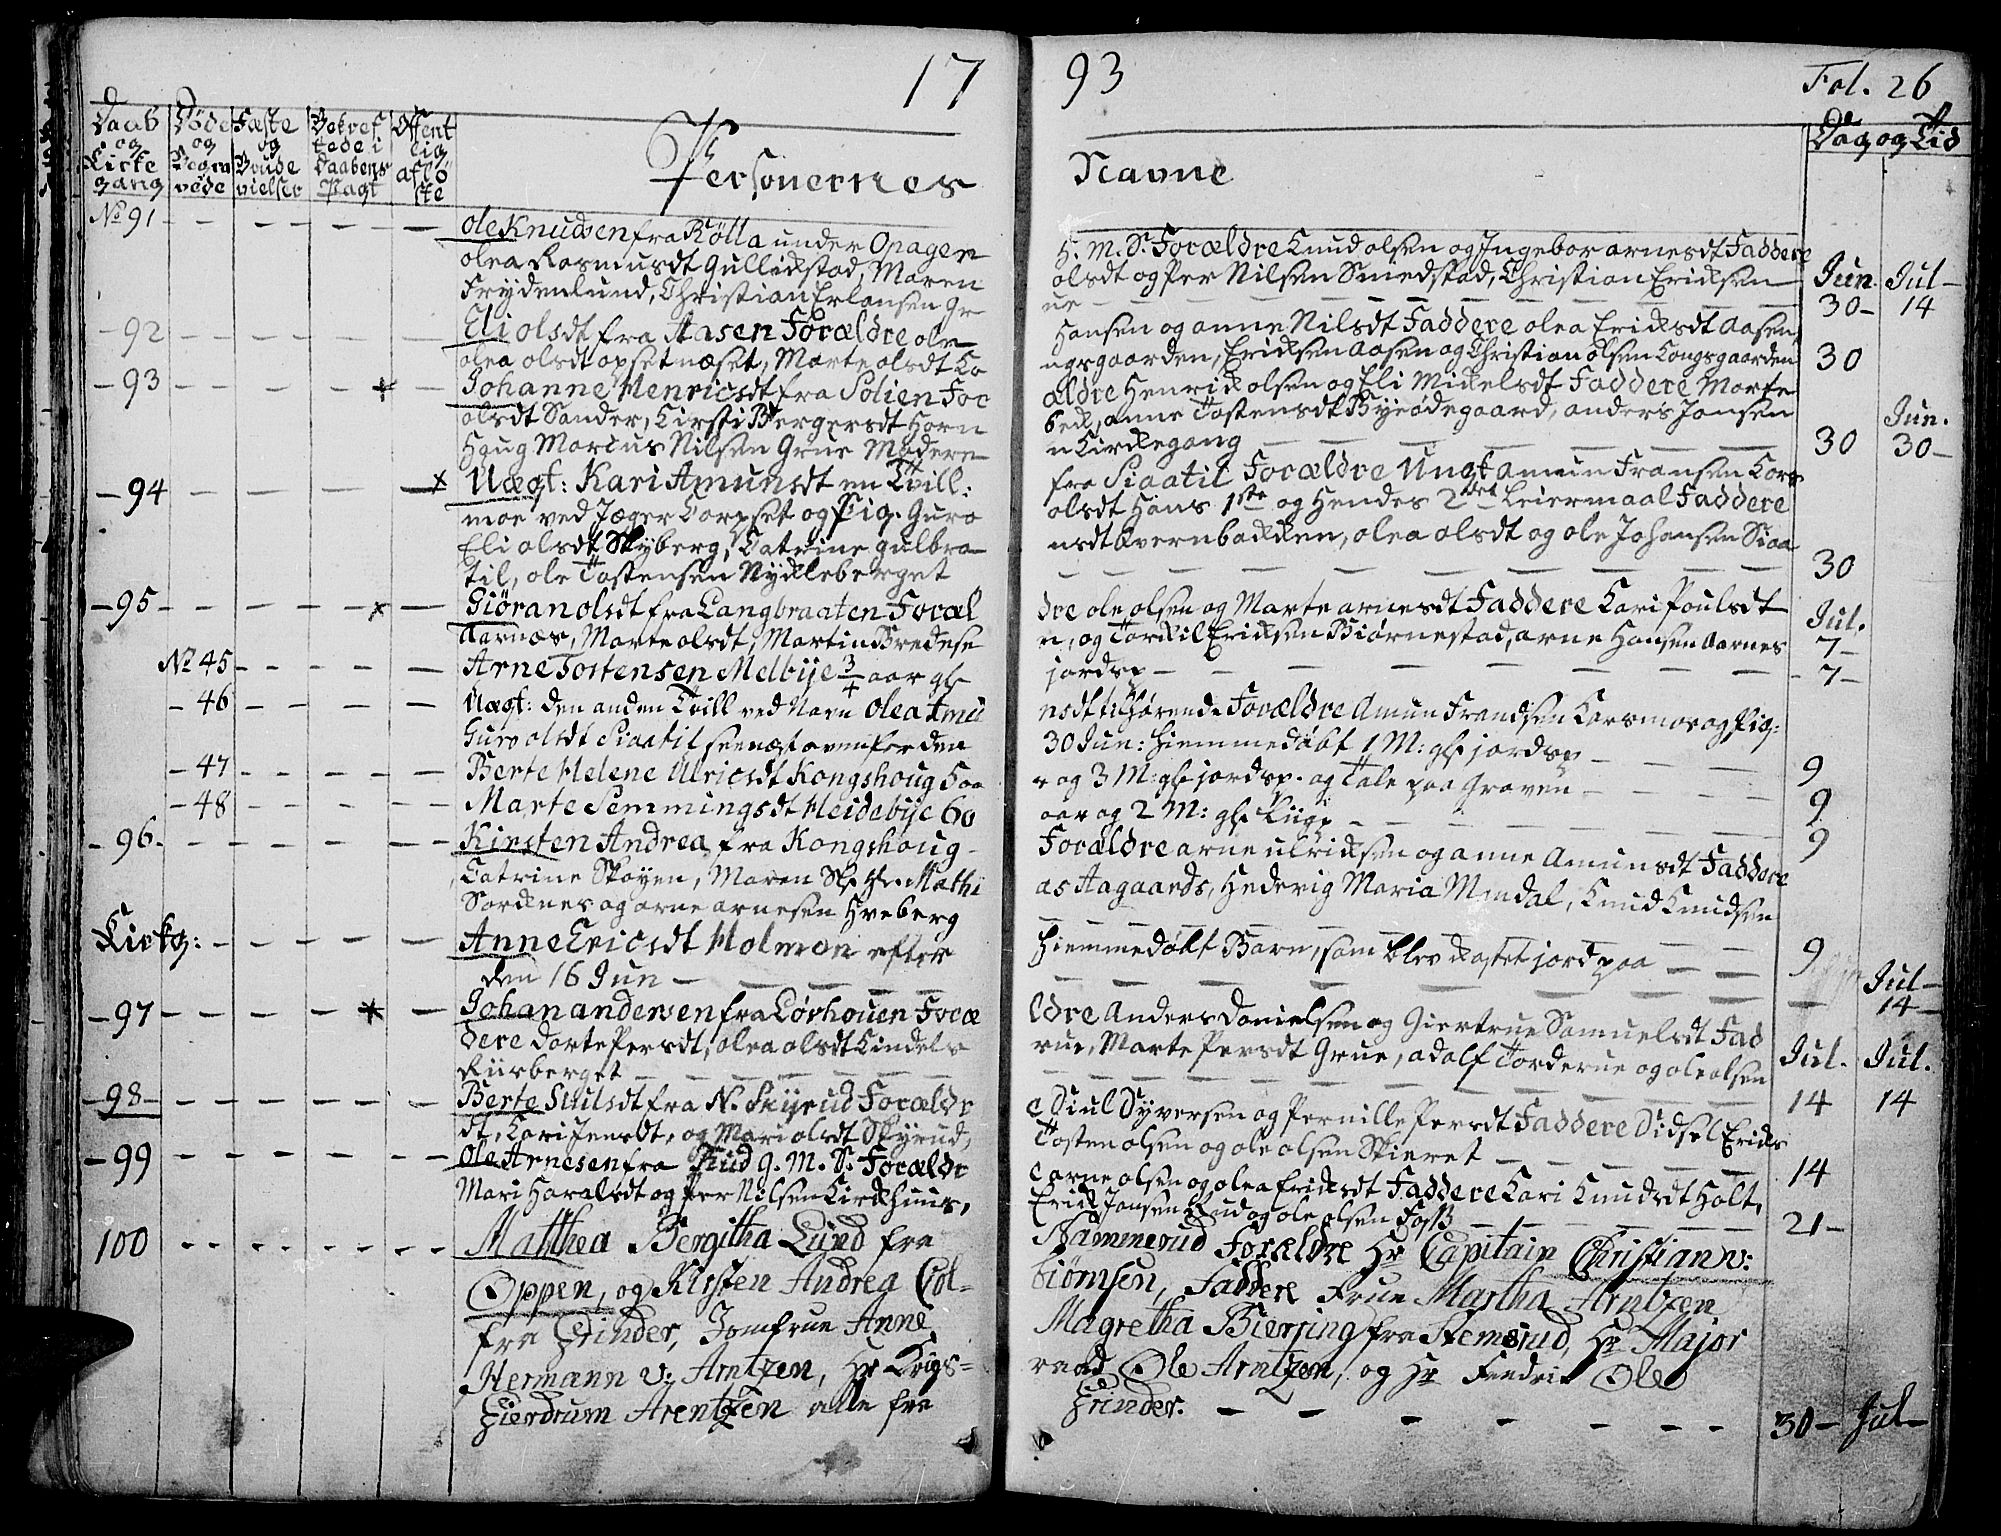 17
93
Fol. 26
Daab og Kirke gang
Døde og Begra vede
Fæste og Brude vielser
Bekref tede i Daabens Pagt
Offent lig aflö ste
Personernes
Navne
Dag og Tid
No 91 - - - - Ole Knudsen fra Rölla under Opagen
H. M. S. Forældre Knud olsen og Ingebor arnesdt Faddere
olea Rasmusdt Gullikstad, Maren
olsdt og Per Nilsen Smedstad, Christian Eriksen Jun. Jul-
Frydenlund, Christian Erlansen Gr
ue - - - - 30- 14
- 92 - - - - Eli olsdt fra Aasen Forældre ole
Hansen og anne Nilsdt Faddere olea Eriksdt Aasen,
olea olsdt opsetnæset, Marte olsdt Ko
ngsgaarden, Eriksen Aasen og Christian olsen Kongsgaarden 30
- 93 - - - - Johanne Henricsdt fra Solien For
ældre Henrik olsen og Eli Mikelsdt Faddere Marte
olsdt Sander, Kirsti Bergersdt Horn
bek, anne Tostensdt Byeødegaard, anders Jansen Jun.
Haug Marcus Nilsen Grue Madere
n Kirkegang - - - - 30 30-
- 94 - - - - Uægt: Kari Amunsdt en Tvill:
fra Siaatil Forældre Ungk amun Fransen Kors
moe ved Jæger Corpset og Pig. Guro
olsdt Hans 1ste og Hendes 2det Leiermaal Faddere
Eli olsdt Skyberg, Catrine gulbra
nsdt Kvernbakken, olea olsdt og ole Johansen Siaa
til, ole Tostensen Nykleberget
- - - - 30
- 95 - - - - Giöran olsdt fra Langbraaten Foræl
dre ole olsen og Marte arnesdt Faddere Kari Poulsdt Jul.
Aarnæs, Marte olsdt, Martin Bredese
n, og Torkil Eriksen Biørnestad, arne Hansen Aarnes 7-
No 45 - - - - Arne Tostensen Melbye 3/4 aar gl.
jordsp - - - - 7-
- 46 - - - - Uægt: den anden Tvill ved Navn Olea Amu
nsdt tilhørende Forældre Amun Frandsen Korsmoe og Pig:
Guro olsdt Siaatil see næst ovenfor den
30 Jun: hiemmedøbt 1 M: gl. jordsp - - - 9
- 47 - - - - Berte Helene Ulricsdt Kongshoug 5 aa
r og 3 M: gl. jordsp. og Tale paa Graven - - - 9
- 48 - - - - Marte Semmingsdt Heidebye 60
aar og 2 M: gl. Liigp - - - 9
- 96. - - - - Kirsten Andrea fra Kongshoug -
Forældre arne ulriksen og anne Amunsdt Faddere
Catrine Skøyen, Maren Sl. Hr. Mathi
as Aagaards, Hedevig Maria Mandal, Knud Knudsen
Sorknes og arne arnesen Hveberg
- - - -
Kirkg: - - - - Anne Ericsdt Holmen efter
hiemmedøbt Barn, som blev kastet jord paa - - 9
den 16 Jun - - - -
Jul- 14-
- 97 - - - - Johan andersen fra Lörhouen Foræ
ldre Anders Danielsen og Giertrue Samuelsdt Fad
dere Dorte Persdt, olea olsdt Kindels
rue, Marte Persdt Grue, adolf Torderue og ole olsen Jul. Jul.
Kiirberget - - - -
- - - - 14 14
- 98 - - - - Berte Siulsdt fra N. Skyrud Forældr
e Siul Syversen og Pernille Persdt Faddere Didsel Eriks
dt, Kari Jensdt, og Mari olsdt Skyrud,
Tosten olsen og ole olsen Skieret - - - 14
- 99 - - - - Ole Arnesen fra Rud g. M. S. Forældr
e arne olsen og olea Eriksdt Faddere Kari Knudsdt Holt,
Mari Haralsdt og Per Nilsen Kirkhuus,
Erik Jansen Rud og ole olsen Foss - - - 21-
100 - - - - Matthea Bergitha Lund fra
Nammerud Forældre Hr Capitain Christian v:
Oppen, og Kirsten Andrea Col-
biörnsen, Faddere Frue Martha Arntzen
fra Grinder, Jomfrue Anne
Magretha Bierring fra Stemsrud, Hr Major
Hermann v: Arntzen, Hr Krigs-
raad Ole Arntzen, og Hr Fendrik Ole
Gierdrum Arentzen alle fra
Grinder. - - - - 30- Jul-